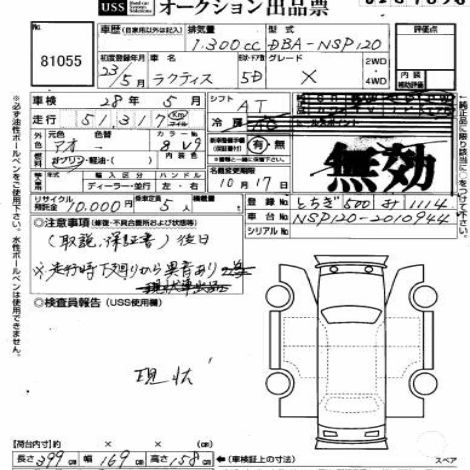 USS オークション出品票
81055
車歴 (自家用以外は記入) 排気量 1.300cc 型式 DBA-NSP120
評価点
初度登録年月 23/5月 ラクティス 形状・ドア数 5D グレード X 2WD 4WD
内装 補助評価
車検 28年 5月 シフト AT
走行 51,317 km マイル 冷房
外色 元色 アオ 色替 カラーNo 8V9 内装色
燃料 ガソリン・軽油・( )
有・無
無効
輸入区分 ハンドル
ディーラー・並行 左・右
名義変更期限 10月17日
リサイクル預託金 10,000円 乗車定員 5人 積載量
登録 とちぎ 500 み 1114
車台 NSP120-2010944
シリアル
◎注意事項 (修復・不具合箇所および状態等)
(取説、保証書) 後日
※走行時下廻りから異音あり
現状車出品
◎検査員報告 (USS使用欄)
現状
【荷台内寸】 約 × × (cm)
長さ 399cm 幅 169cm 高さ 158cm ←(車検証上の寸法)
スペア
※必ず油性ボールペンをご使用下さい。水性ボールペンは使用できません。